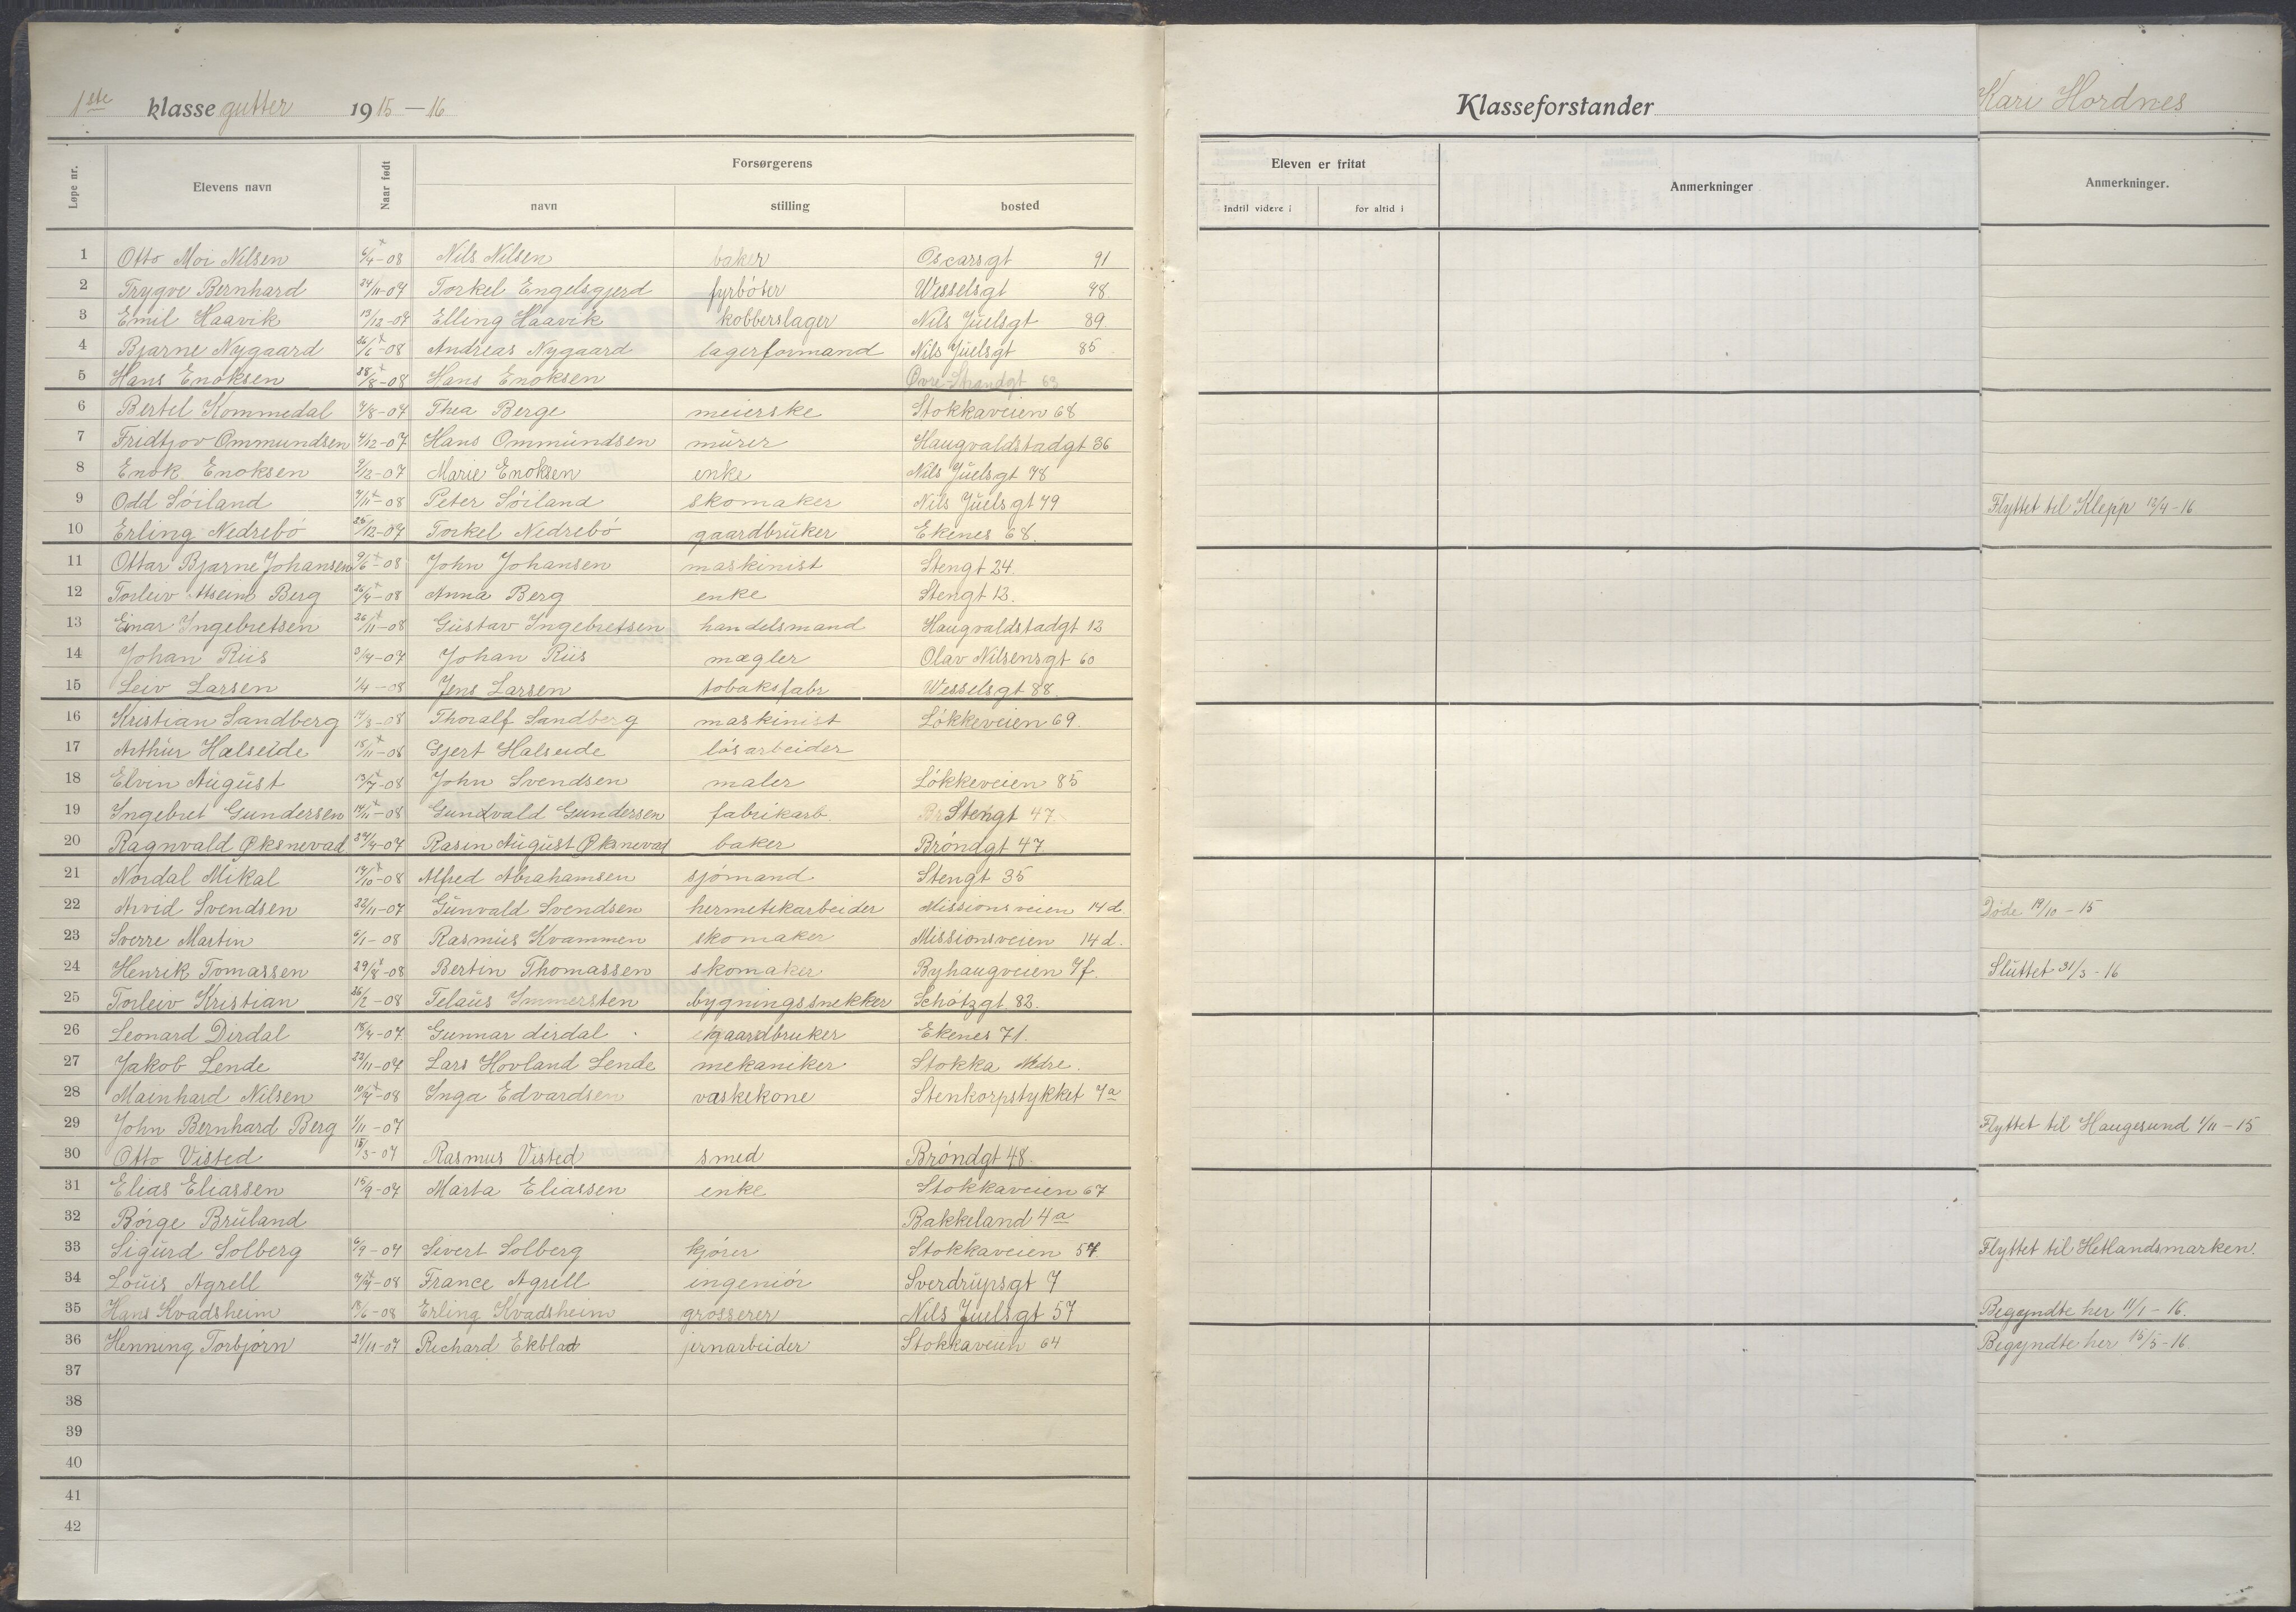 1ste klasse gutter 1915-16
Klasseforstander Kari Hordnes
Løpe nr. Elevens navn Naar født Forsørgerens
navn stilling bosted
Eleven er fritat Anmerkninger Anmerkninger.
indtil videre i for altid i
1 Otto Moi Nilsen 6/4-08 Nils Nilsen baker Oscarsgt 91
2 Trygve Bernhard 24/11-07 Torkel Engelsgjerd fyrbøter Wesselsgt 78
3 Emil Haavik 13/12-07 Elling Haavik kobberslager Nils Juelsgt 89.
4 Bjarne Nygaard 26/6-08 Andreas Nygaard lagerformand Nils Juelsgt 85
5 Hans Enoksen 28/8-08 Hans Enoksen Øvre Strandgt 69
6 Bertel Kommedal 7/8-07 Thea Berge meierske Stokkaveien 68
7 Fridtjov Ommundsen 4/12-07 Hans Ommundsen murer Haugvaldstadgt 36
8 Enok Enoksen 9/12-07 Marie Enoksen enke Nils Juelsgt 78
9 Odd Söiland 7/11-08 Peter Söiland skomaker Nils Juelsgt 79 Flyttet til Klepp 12/4-16
10 Erling Nedrebö 25/12-07 Torkel Nedrebö gaardbruker Ekenes 68.
11 Ottar Bjarne Johansen 9/6-08 John Johansen maskinist Stengt 24.
12 Torleiv Berg Anna Berg enke Stengt 12.
13 Einar Ingebretsen 26/11-08 Gustav Ingebretsen handelsmand Haugvaldstadgt 12
14 Johan Riis Johan Riis mægler Olav Nilsensgt 60
15 Leiv Larsen 1/4-08 Jens Larsen tobaksfabr Wesselsgt 88.
16 Kristian Sandberg 14/3-08 Thoralf Sandberg maskinist Lökkeveien 69.
17 Arthur Halseide 18/11-08 Gjert Halseide lösarbeider
18 Elvin August 13/7-08 John Svendsen maler Lökkeveien 85
19 Ingebret Gundersen 14/11-08 Gundvald Gundersen fabrikarb. Stengt 47.
20 Ragnvald Øksnevad 24/4-07 Rasm August Øksnevad baker Bröndgt 47
21 Nordal Mikal 14/10-08 Alfred Abrahamsen sjömand Stengt 35
22 Arvid Svendsen 22/11-07 Gunvald Svendsen hermetikarbeider Missionsveien 14 d. Döde 19/10-15
23 Sverre Martin 6/1-08 Rasmus Kvammen skomaker Missionsveien 14 d.
24 Henrik Tomassen 29/8-08 Bertin Thomassen skomaker Byhaugveien 7f. Sluttet 31/3-16
25 Torleiv Kristian 26/2-08 Telaus Immersten bygningssnekker Schötzgt. 82.
26 Leonard Dirdal 18/4-07. Gunnar dirdal gaardbruker Ekenes 71.
27 Jakob Lende 22/11-07 Lars Hovland Lende mekaniker Stokka Nedre.
28 Mainhard Nilsen 10/4-08 Inga Edvardsen vaskekone Stenkorpstykket 7a
29 John Bernhard Berg 1/11-07 Flyttet til Haugesund 1/11-15
30 Otto Visted 15/3-07 Rasmus Visted smed Bröndgt 48.
31 Elias Eliassen 15/9-07 Marta Eliassen enke Stokkaveien 67
32 Börge Bruland Bakkeland 4a
33 Sigurd Solberg 6/9-07 Sivert Solberg kjörer Stokkaveien 57. Flyttet til Hetlandsmarken.
34 Louis Agrell France Agrell ingeniör Sverdrupsgt 7
35 Hans Kvadsheim 13/6-08 Erling Kvadsheim grosserer Nils Juelsgt 57 Begyndte her 11/1-16.
36 Henning Torbjörn 21/11-07 Richard Ekblad jernarbeider Stokkaveien 64 Begyndte her 15/5-16.
37
38
39
40
41
42